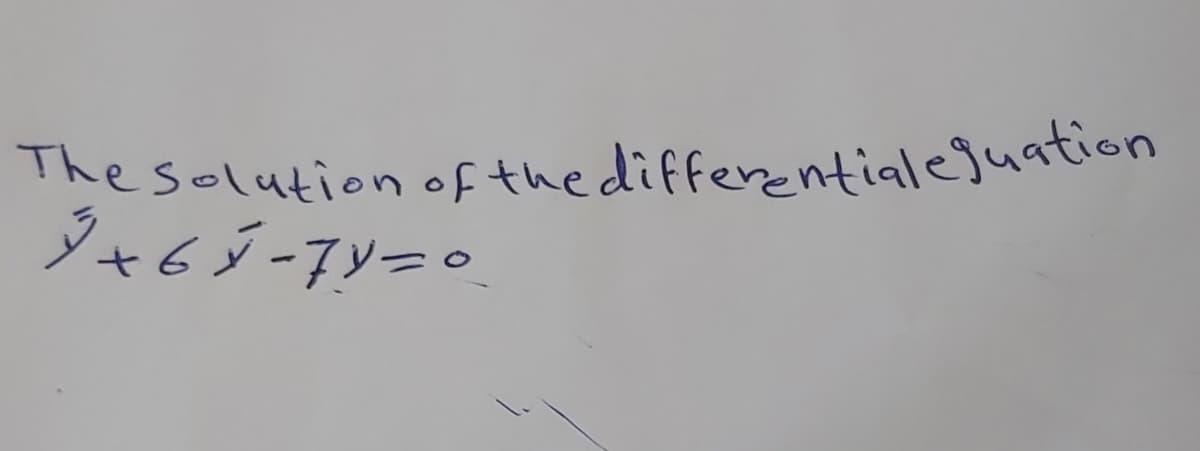 The solution of the differential equation
y̋ + 6 ý - 7y = 0